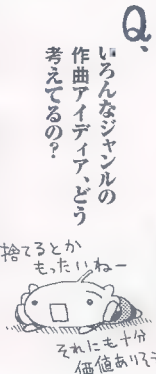 Q、
いろんなジャンルの
作曲アイディア、どう
考えてるの？
捨てるとか
もったいねー
それにも十分
価値ありそう